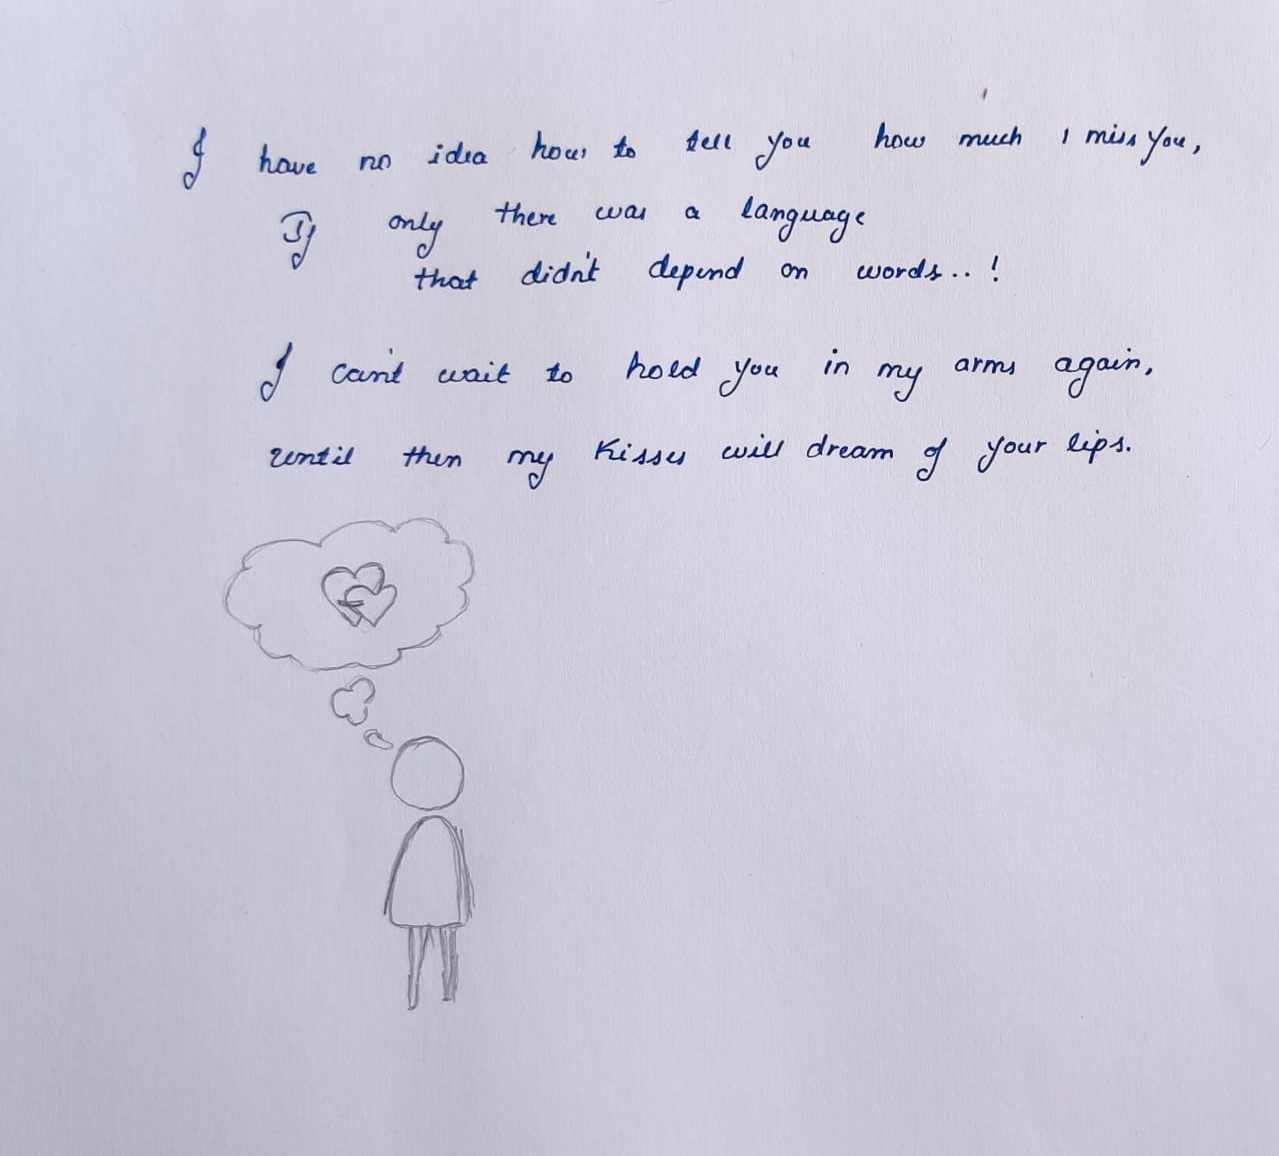 I have no idea how to tell you how much I miss you,
If only there was a language
that didn't depend on words..!
I can't wait to hold you in my arms again,
until then my kisses will dream of your lips.